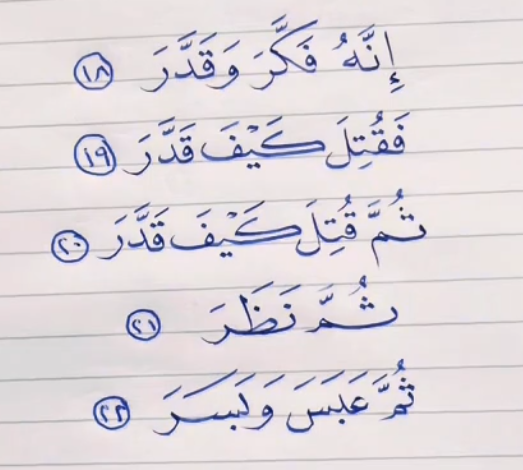 إِنَّهُ فَكَّرَ وَقَدَّرَ ١٨
فَقُتِلَ كَيْفَ قَدَّرَ ١٩
ثُمَّ قُتِلَ كَيْفَ قَدَّرَ ٢٠
ثُمَّ نَظَرَ ٢١
ثُمَّ عَبَسَ وَبَسَرَ ٢٢